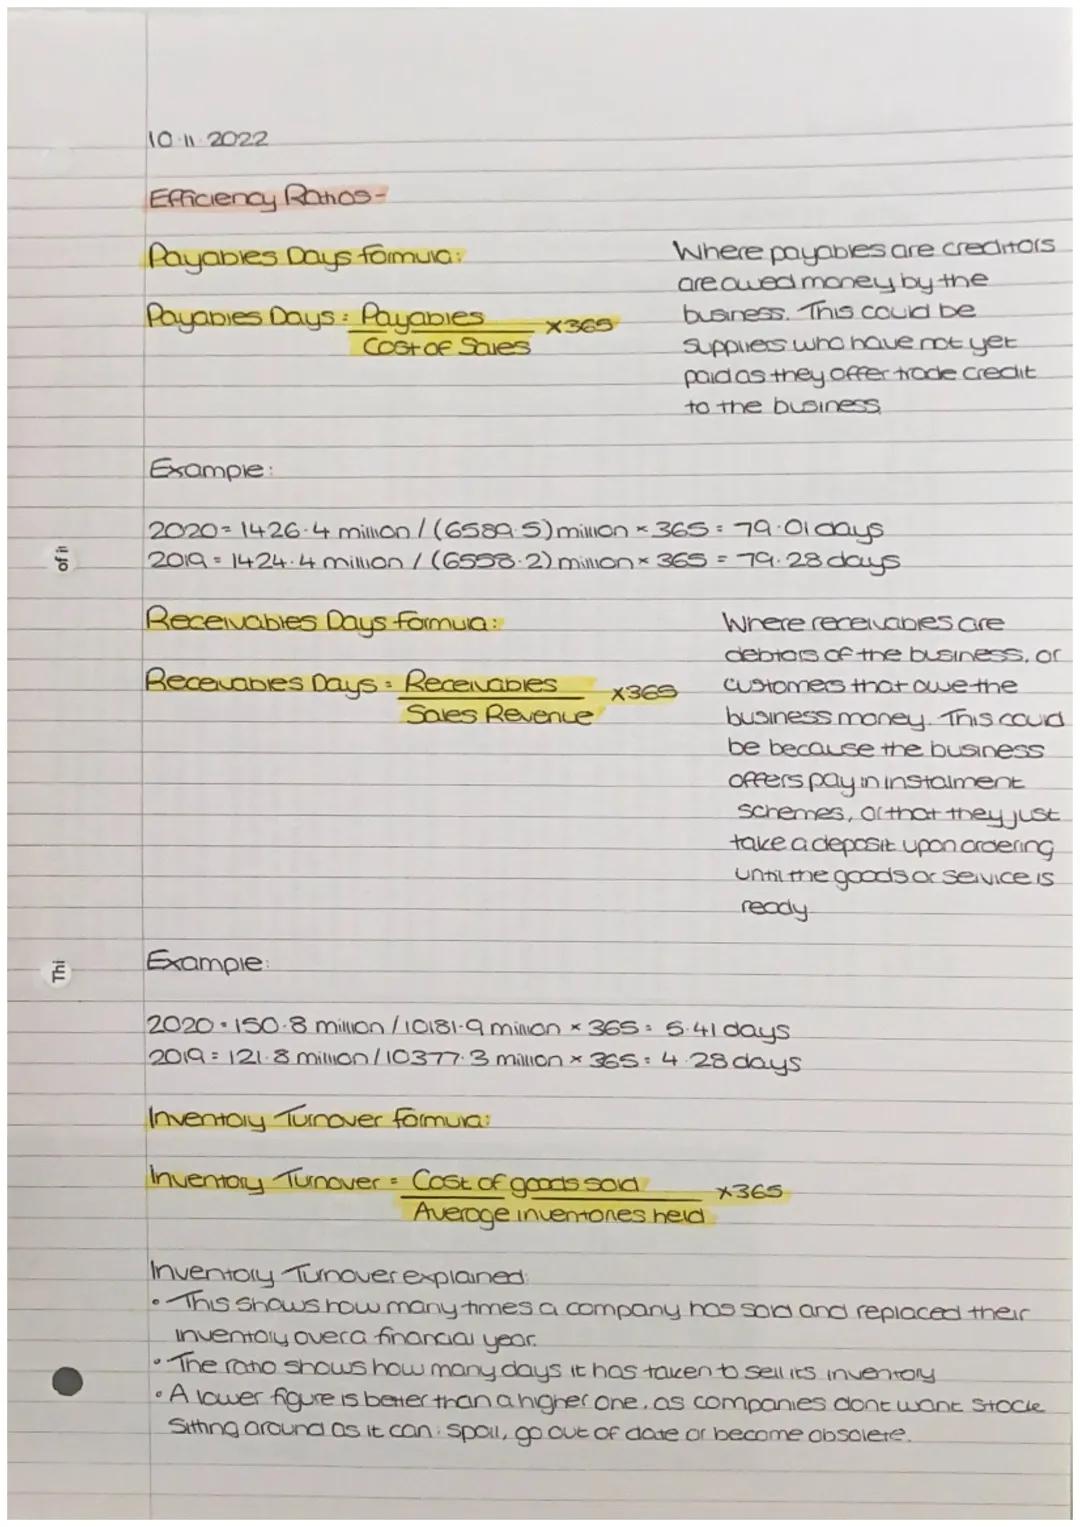 10.11.2022
Efficiency Ratios-
Payables Days formula:
Payables Days = Payables
Cost of Sales
x365
Where payables are creditors
are owed money by the
business. This could be
suppliers who have not yet
paid as they offer trade credit
to the business.
Example:
2020 = 1426.4 million / (6589.5) million × 365 = 79.01 days
2019 = 1424.4 million / (6558.2) million × 365 = 79.28 days
of ii
Receivables Days formula:
Receivables Days = Receivables
Sales Revenue
x365
Where receivables are
debtors of the business, or
customers that owe the
business money. This could
be because the business
offers pay in instalment
schemes, or that they just
take a deposit upon ordering
until the goods or service is
ready
Thi
Example:
2020 = 150.8 million / 10181.9 million × 365 = 5.41 days
2019 = 121.8 million / 10377.3 million × 365 = 4.28 days
Inventory Turnover formula:
Inventory Turnover = Cost of goods sold
Average inventories held
x365
Inventory Turnover explained:
• This shows how many times a company has sold and replaced their
inventory over a financial year.
• The ratio shows how many days it has taken to sell its inventory
• A lower figure is better than a higher one, as companies dont want stock
sitting around as it can: spoil, go out of date or become obsolete.